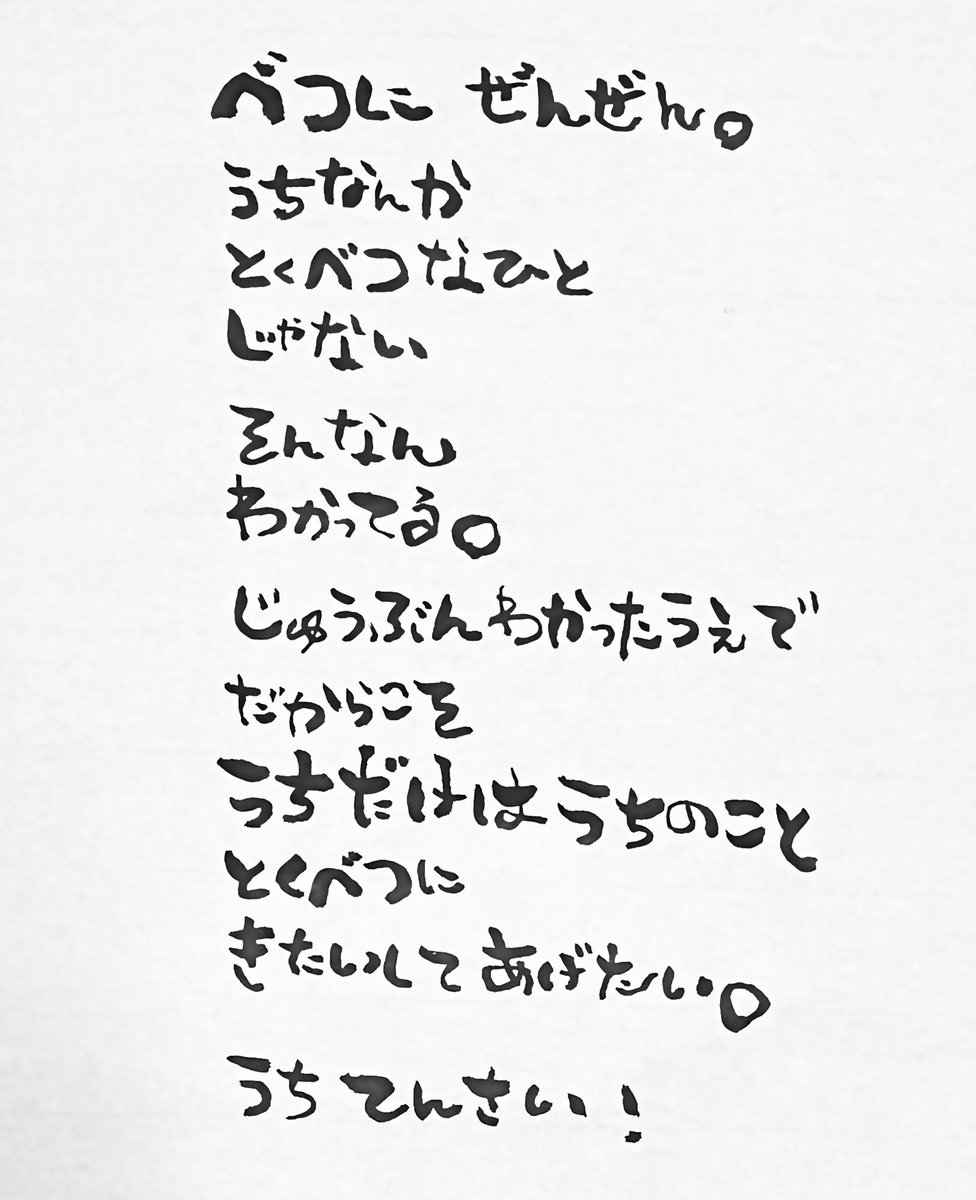 べつに ぜんぜん。
うちなんか
とくべつなひと
じゃない
そんなん
わかってる。
じゅうぶんわかったうえで
だからこそ
うちだけはうちのこと
とくべつに
きたいしてあげたい。
うちてんさい!